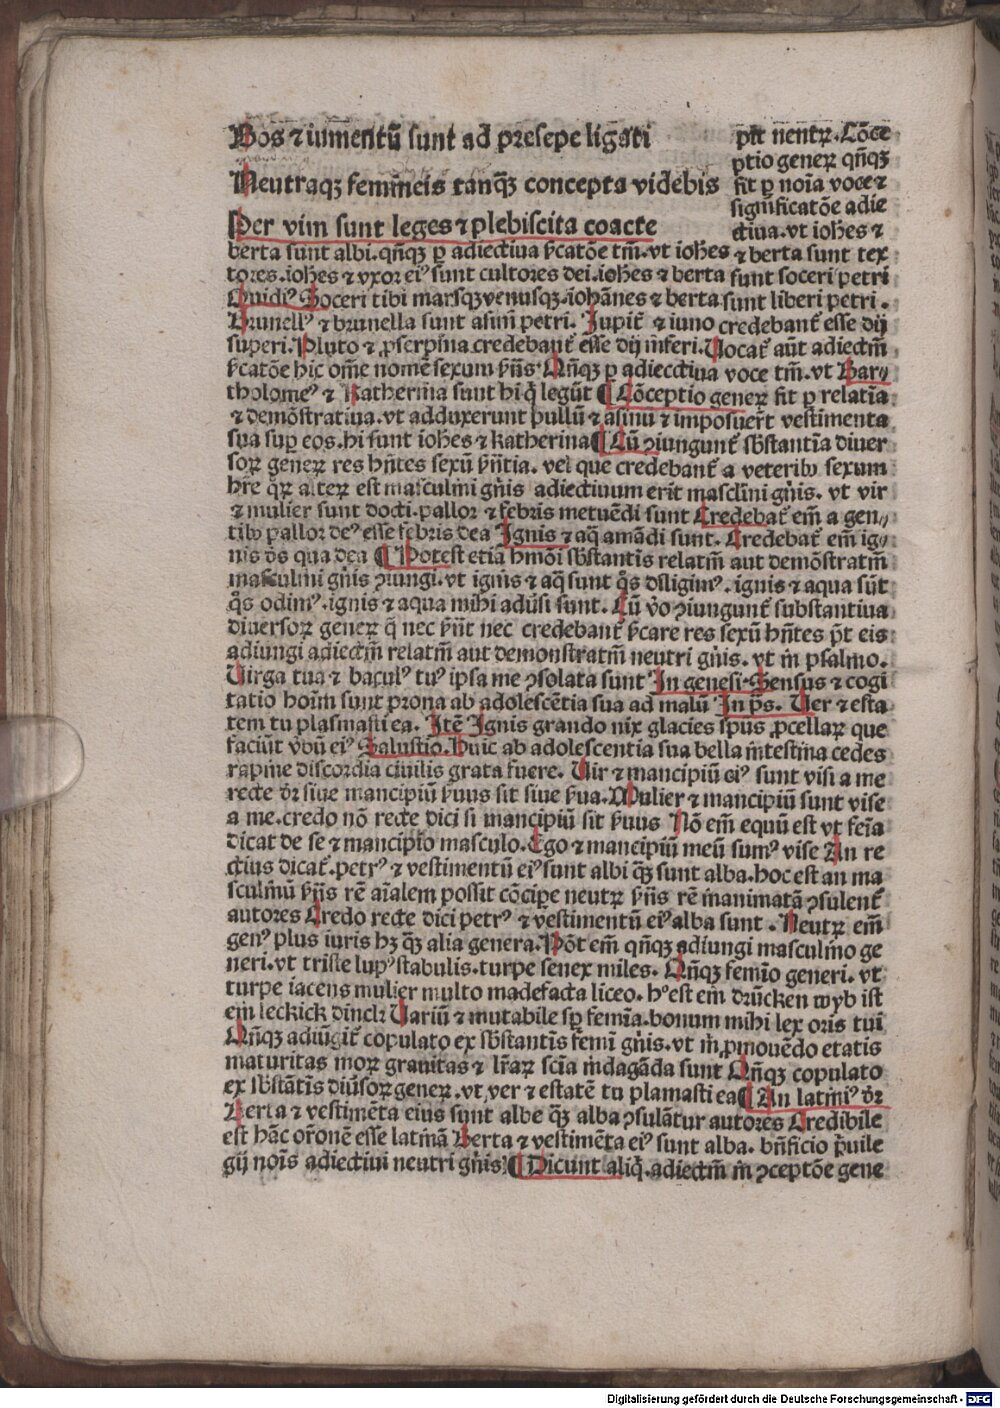 Bos ⁊ iumentū sunt ad presepe ligati
Neutraqꝫ femineis tanqꝫ̄ concepta videbis
Per vim sunt leges ⁊ plebiscita coacte
pit neutrꝝ. Cōce
ptio generꝝ qn̄qꝫ
fit ꝑ noīa voce ⁊
significatōe adie
ctiua. vt ioh̄es ⁊
berta sunt albi. qn̄qꝫ ꝑ adiectiua ẜcatōe tm̄. vt ioh̄es ⁊ berta sunt tex
tores. ioh̄es ⁊ vxor eiꝰ sunt cultores dei. ioh̄es ⁊ berta sunt soceri petri
Ouidiꝰ Soceri tibi marsqꝫ venusqꝫ. iohānes ⁊ berta sunt liberi petri.
Brunellꝰ ⁊ brunella sunt asini petri. Jupit̄ ⁊ iuno credebant̄ esse dij
superi. Pluto ⁊ ꝓserpina credebant̄ esse dij inferi. Uocat̄ aūt adiectm̄
ẜcatōe hic om̄e nomē sexum ẜn̄s. Qn̄qꝫ ꝑ adiectiua voce tm̄. vt Bar⸗
tholomeꝰ ⁊ Katherina sunt hi q̄ legūt ¶ Cōceptio generꝝ fit ꝑ relatīa
⁊ demōstratiua. vt adduxerunt pullū ⁊ asinū ⁊ imposuer̄t vestimenta
sua suꝑ eos. hi sunt ioh̄es ⁊ katherina ¶ Cū ꝯiungunt̄ sb̄stantīa diuer
soꝝ generꝝ res hn̄tes sexū ẜn̄tia. vel que credebant̄ a veteribꝰ sexum
hr̄e qꝝ alterꝝ est masculini gn̄is adiectiuum erit mascl̄ini gn̄is. vt vir
⁊ mulier sunt docti. pallor ⁊ febris metuēdi sunt Credebat̄ em̄ a gen⸗
tibꝰ pallor deꝰ esse febris dea Ignis ⁊ aq̄ amādi sunt. Credebat̄ em̄ ig⸗
nis dꝰs qua dea ¶ Potest etiā hmōi sb̄stantis relatm̄ aut demōstratm̄
masculini gn̄is ꝯiungi. vt ignis ⁊ aq̄ sunt q̊s dīligimꝰ. ignis ⁊ aqua sūt
q̊s odimꝰ. ignis ⁊ aqua mihi adūsi sunt. Cū v̊o ꝯiungunt̄ substantiua
diuersoꝝ generꝝ q̄ nec ẜn̄t nec credebant̄ ẜcare res sexū hn̄tes p̄t eis
adiungi adiectm̄ relatm̄ aut demonstratm̄ neutri gn̄is. vt in̄ psalmo.
Uirga tua ⁊ baculꝰ tuꝰ ipsa me ꝯsolata sunt In genesi. Sensus ⁊ cogi
tatio hoīm sunt prona ab adolescētia sua ad malū In p̄s. Uer ⁊ esta
tem tu plasmasti ea. Itē Ignis grando nix glacies spūs ꝓcellaꝝ que
faciūt v̄bū eiꝰ Salustiꝰ. Huic ab adolescentia sua bella intestina cedes
rapine discordia ciuilis grata fuere. Uir ⁊ mancipiū eiꝰ sunt visi a me
recte dr̄ siue mancipiū ẜuus sit siue ẜua. Mulier ⁊ mancipiū sunt vise
a me. credo nō recte dici si mancipiū sit ẜuus Nō em̄ equū est vt feīa
dicat de se ⁊ mancipio masculo. Ego ⁊ mancipiū meū sumꝰ vise An re
ctius dicat̄. petrꝰ ⁊ vestimentū eiꝰ sunt albi qꝫ̄ sunt alba. hoc est an ma
sculinū ẜn̄s rē aīalem possit cōciꝑe neutrꝝ ẜn̄s rē inanimatā ꝯsulent̄
autores Credo recte dici petrꝰ ⁊ vestimentū eiꝰ alba sunt. Neutrꝝ em̄
genꝰ plus iuris hꝫ qꝫ̄ alia genera. Pōt em̄ qn̄qꝫ adiungi masculino ge
neri. vt triste lupꝰ stabulis. turpe senex miles. Qn̄qꝫ femīo generi. vt
turpe iacens mulier multo madefacta liceo. hꝰ est em̄ drūcken wyb ist
ein leckick dinck Uariū ⁊ mutabile sp̄ femīa. bonum mihi lex oris tui
Qn̄qꝫ adiūgit̄ copulato ex sb̄stantis femi gn̄is. vt in̄ ꝓmouēdo etatis
maturitas moꝝ grauitas ⁊ lr̄aꝝ scīa indagāda sunt Qn̄qꝫ copulato
ex sb̄stātis diūsoꝝ generꝝ. vt ver ⁊ estatē tu plamasti ea ¶ An latiniꝰ dr̄
Berta ⁊ vestimēta eius sunt albe qꝫ̄ alba ꝯsulātur autores Credibile
est hāc or̄onē esse latinā Berta ⁊ vestimēta eiꝰ sunt alba. bn̄ficio p̄uile
gij noīs adiectiui neutri gn̄is. ¶ Dicunt aliq̄. adiectm̄ in̄ ꝯceptōe gene
Digitalisierung gefördert durch die Deutsche Forschungsgemeinschaft - DFG